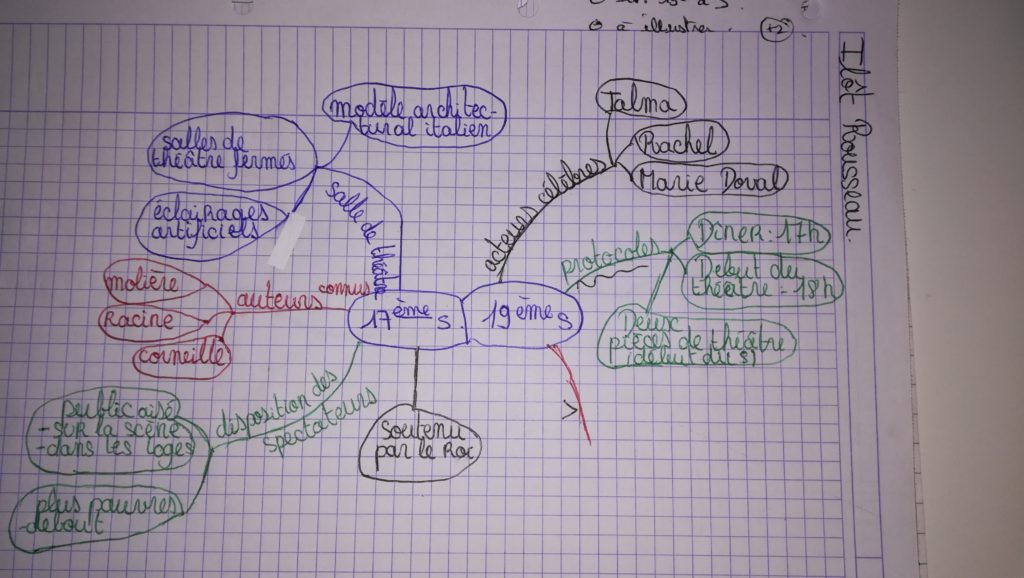 à illustrer. +2
Ilôt Rousseau.
modèle architec-
tural italien
salles de
théâtre fermés
éclairages
artificiels
salle de théâtre
molière
Racine
corneille
auteurs connus
17ème s.
19ème s
disposition des
spectateurs
public aisé
-sur la scène
-dans les loges
plus pauvres
-debout
soutenu
par le Roi
acteurs célèbres
Talma
Rachel
Marie Doval
protocoles
Dîner : 17h
Debut du
théâtre - 18h
Deux
pièces de théâtre
(début du s)